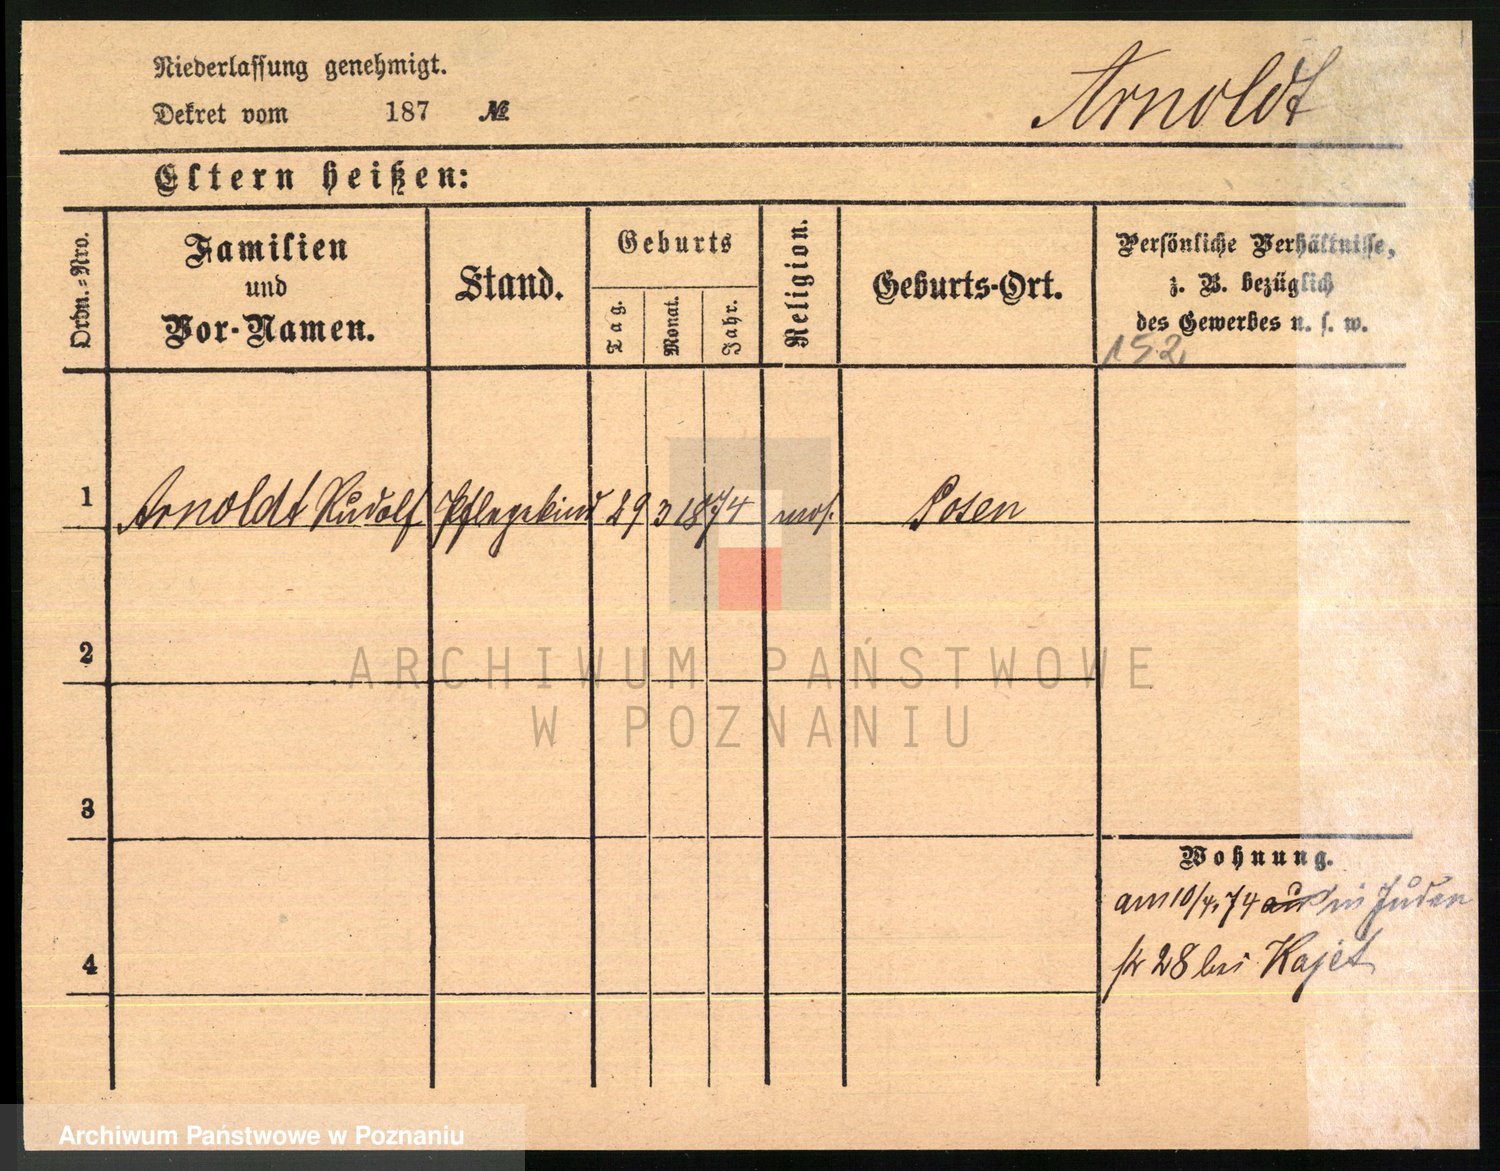 Niederlassung genehmigt.
Arnoldt
Dekret vom 187 №
Eltern heißen:
Ordn.-Nro.
Familien
und
Vor-Namen.
Stand.
Geburts
Tag.
Monat.
Jahr.
Religion.
Geburts-Ort.
Persönliche Verhältnisse,
z. B. bezüglich
des Gewerbes u. s. w.
152
1 Arnoldt Rudolf Pflegekind 29 3 1874 mos. Posen
2
ARCHIWUM PAŃSTWOWE
W POZNANIU
3
Wohnung.
am 10/4. 74 aus in Juden
4
str 28 bei Kajet
Archiwum Państwowe w Poznaniu